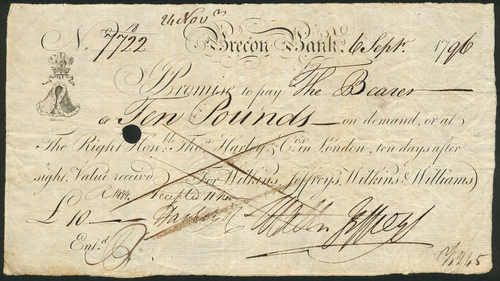 24 Nov.r
No. 7722 Brecon Bank 6 Sept. 1796
I Promise to pay The Bearer
Ten Pounds on demand, or at
The Right Hon.ble Tho.s Harley & Co.rs in London, ten days after
sight, Value received. For Wilkins, Jeffreys, Wilkins & Williams
Accepted
£10
Ent.d Jeffreys
245